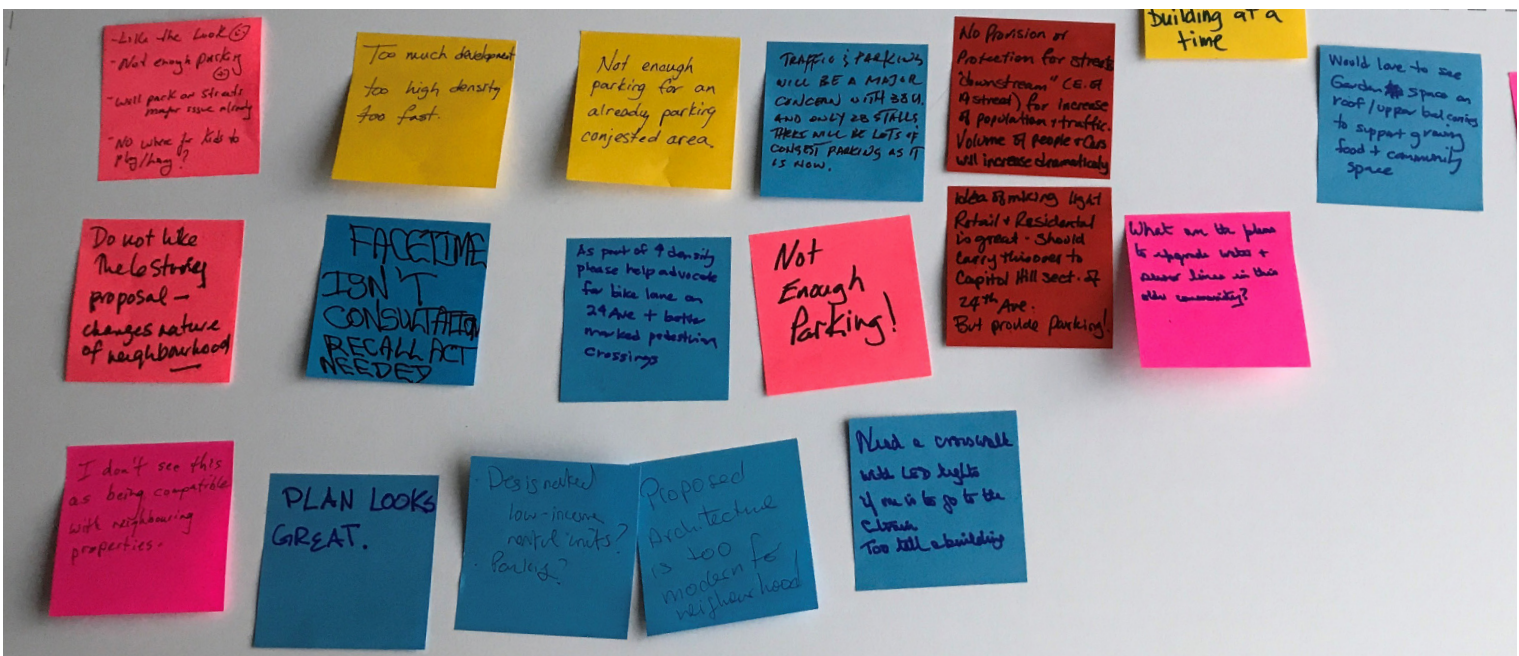 - Like the Look
- Not enough parking
- Will park on streets
major issue already
- No where for kids to
play/hang?
Too much development
too high density
too fast.
Not enough
parking for an
already parking
conjested area.
TRAFFIC & PARKING
WILL BE A MAJOR
CONCERN WITH 38U.
AND ONLY 28 STALLS
THERE WILL BE LOTS OF
CONGEST PARKING AS IT
IS NOW.
No Provision or
Protection for streets
"downstream" (I.E. of
19 street) for increase
of population & traffic.
Volume of people & Cars
will increase dramatically
building at a
time
Would love to see
Garden space on
roof/upper balconies
to support growing
food + community
space
Do not like
The 6 storey
proposal -
changes nature
of neighbourhood
FACETIME
ISN'T
CONSULTATION
RECALL ACT
NEEDED
As part of ↑ density
please help advocate
for bike lane on
24 Ave + better
marked pedestrian
crossings
Not
Enough
Parking!
Idea of mixing light
Retail & Residental
is great - Should
carry this over to
Capitol Hill sect. of
24th Ave.
But provide parking!
What are the plans
to upgrade water +
sewer lines in this
older community?
I don't see this
as being compatible
with neighbouring
properties.
PLAN LOOKS
GREAT.
· Designated
low-income
rental units?
· Parking?
Proposed
Architecture
is too
modern for
neighbourhood
Need a crosswalk
with LED lights
if one is to go to the
Too tall a building